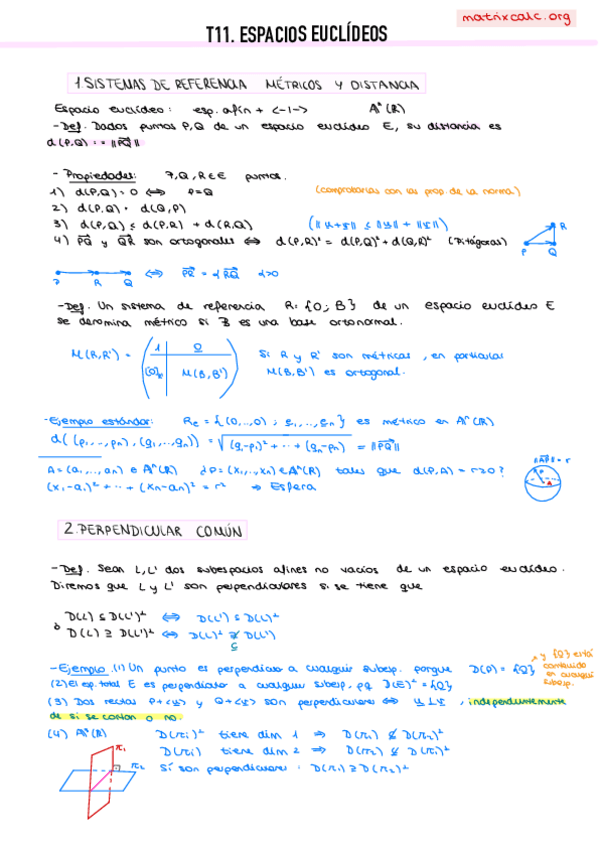 matrixcalc.org
T11. ESPACIOS EUCLÍDEOS
1. SISTEMAS DE REFERENCIA MÉTRICOS Y DISTANCIA
Espacio euclídeo: esp. afín + <-,-> Aⁿ(R)
- Def. Dados puntos P,Q de un espacio euclídeo E, su distancia es
d(P,Q) := ||PQ||
- Propiedades: P,Q,R∈E puntos.
1) d(P,Q)=0 ⟺ P=Q (comprobarlas con las prop. de la norma)
2) d(P,Q) = d(Q,P)
3) d(P,Q) ≤ d(P,R) + d(R,Q) (||u+v|| ≤ ||u|| + ||v||)
4) PQ y QR son ortogonales ⟺ d(P,R)² = d(P,Q)² + d(Q,R)² (Pitágoras)
R
P Q
P R Q ⟺ PR = αRQ α>0
- Def. Un sistema de referencia R={O; B} de un espacio euclídeo E
se denomina métrico si B es una base ortonormal.
M(R,R') = (1 0
(O)R' M(B,B')) Si R y R' son métricas, en particular
M(B,B') es ortogonal.
- Ejemplo estándar: Re = {(0,...,0); e1,...,en} es métrico en Aⁿ(R)
d((p1,...,pn),(q1,...,qn)) = √(q1-p1)² + ... + (qn-pn)² = ||PQ||
A=(a1,...,an) ∈ Aⁿ(R) ¿P=(x1,...,xn)∈Aⁿ(R) tales que d(P,A)=r>0?
||AP||=r
(x1-a1)² + ... + (xn-an)² = r² → Esfera
P
A
2. PERPENDICULAR COMÚN
- Def. Sean L,L' dos subespacios afines no vacíos de un espacio euclídeo.
Diremos que L y L' son perpendiculares si se tiene que
D(L) ⊆ D(L')⊥ ⟺ D(L') ⊆ D(L)⊥
o D(L) ⊇ D(L')⊥ ⟺ D(L)⊥ ⊆ D(L')
- Ejemplo. (1) Un punto es perpendicular a cualquier subesp. porque D(P) = {0}
y {0} está
contenido
en cualquier
subesp.
(2) El esp. total E es perpendicular a cualquier subesp. pq D(E)⊥ = {0}
(3) Dos rectas P+<u> y Q+<v> son perpendiculares ⟺ u⊥v, independientemente
de si se cortan o no.
(4) A³(R) D(π1)⊥ tiene dim 1 ⇒ D(π2) ⊈ D(π1)⊥
D(π1) tiene dim 2 ⇒ D(π2) ⊈ D(π1)⊥
π1
π2 Sí son perpendiculares: D(π1) ⊇ D(π2)⊥